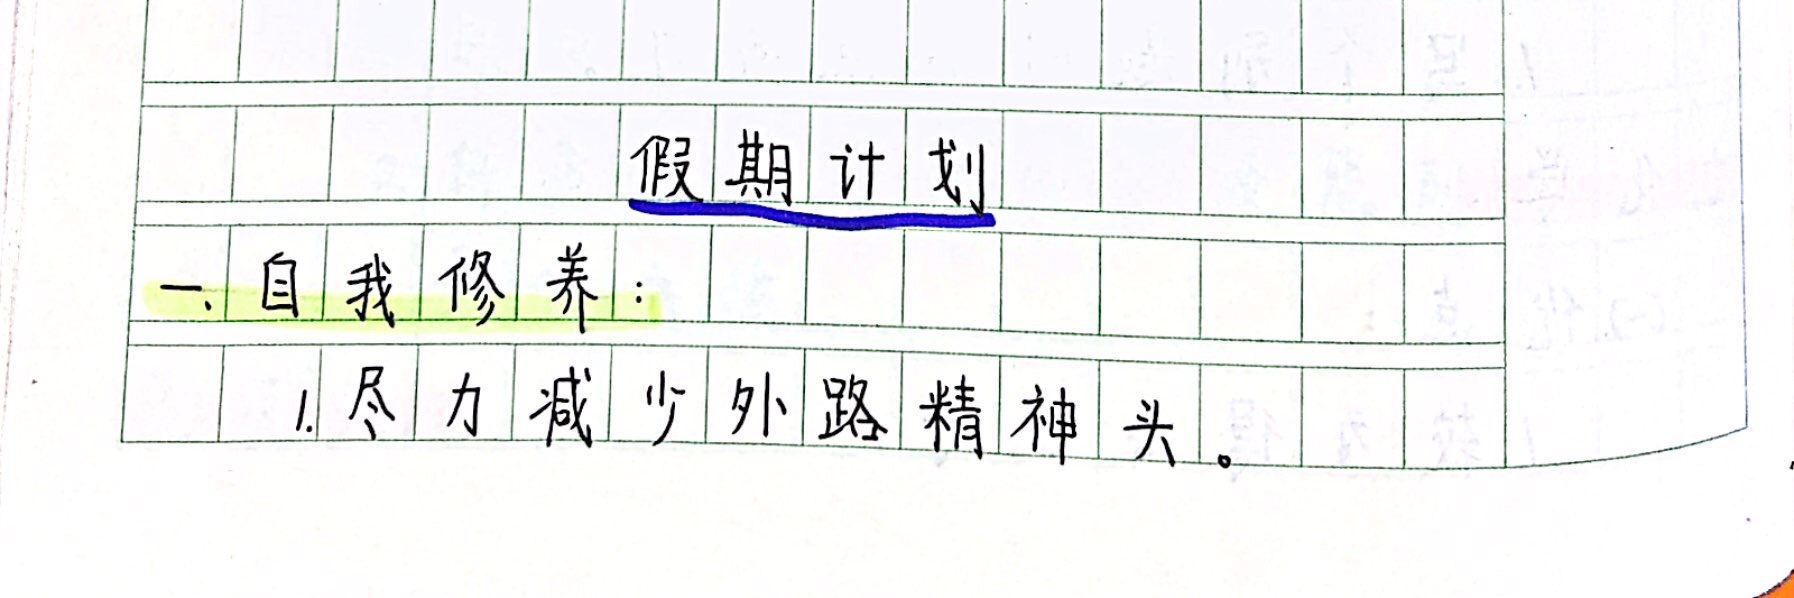 假期计划
一、自我修养：
1.尽力减少外路精神头。